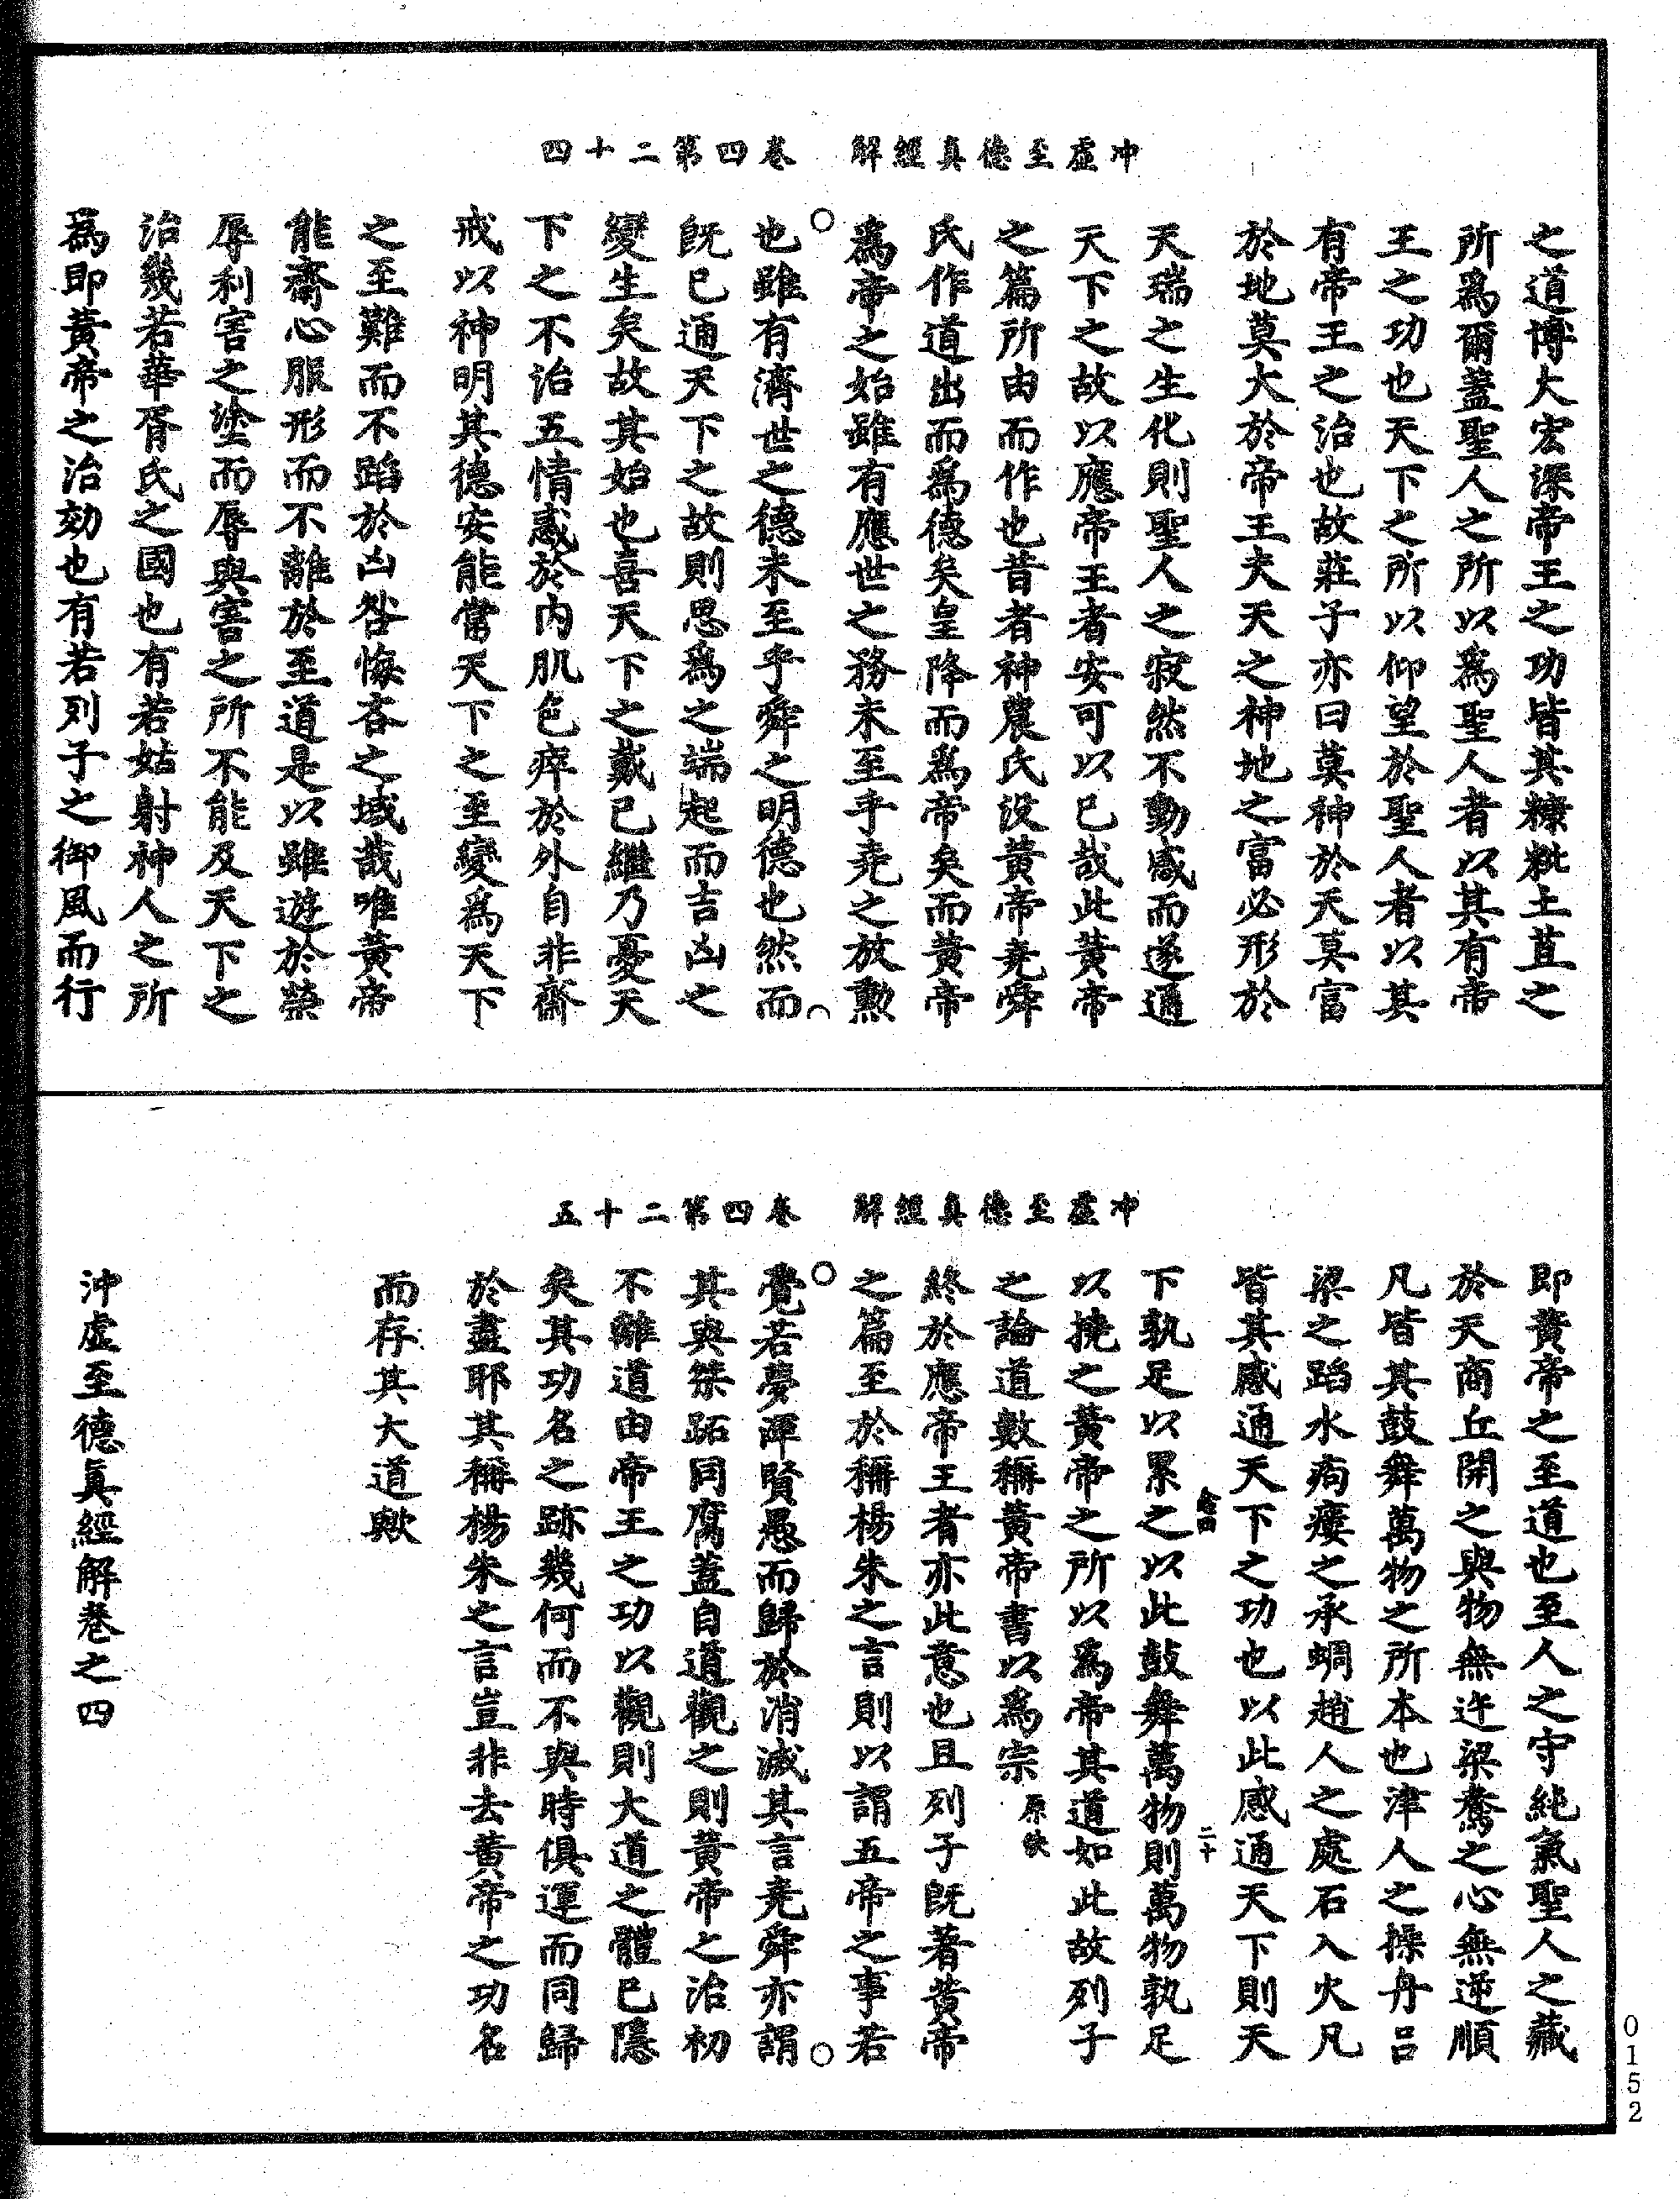 冲虛至德真經解　卷四第二十四
之道博大宏深帝王之功皆其糠粃土苴之
所爲爾蓋聖人之所以爲聖人者以其有帝
王之功也天下之所以仰望於聖人者以其
有帝王之治也故莊子亦曰莫神於天莫富
於地莫大於帝王夫天之神地之富必形於
天瑞之生化則聖人之寂然不動感而遂通
天下之故以應帝王者安可以已哉此黃帝
之篇所由而作也昔者神農氏没黃帝堯舜
氏作道出而爲德矣皇降而爲帝矣而黃帝
爲帝之始雖有應世之務未至乎堯之放勲
也雖有濟世之德未至乎舜之明德也然而
旣已通天下之故則思爲之端起而吉凶之
變生矣故其始也喜天下之戴已繼乃憂天
下之不治五情惑於内肌色瘁於外自非齋
戒以神明其德安能當天下之至變爲天下
之至難而不蹈於凶咎悔吝之域哉唯黃帝
能齋心服形而不離於至道是以雖遊於榮
辱利害之塗而辱與害之所不能及天下之
治幾若華胥氏之國也有若姑射神人之所
爲即黃帝之治効也有若列子之御風而行
冲虛至德真經解　卷四第二十五
即黃帝之至道也至人之守純氣聖人之藏
於天商丘開之與物無迕梁鴦之心無逆順
凡皆其鼓舞萬物之所本也津人之操舟吕
梁之蹈水痀瘻之承蜩趙人之處石入火凡
皆其感通天下之功也以此感通天下則天
下孰足以累之以此鼓舞萬物則萬物孰足
二十
以撓之黃帝之所以爲帝其道如此故列子
之論道數稱黃帝書以爲宗原缺
終於應帝王者亦此意也且列子旣著黃帝
之篇至於稱楊朱之言則以謂五帝之事若
覺若夢渾賢愚而歸於消滅其言堯舜亦謂
其與桀跖同腐蓋自道觀之則黃帝之治初
不離道由帝王之功以觀則大道之體已隱
矣其功名之跡幾何而不與時俱運而同歸
於盡耶其稱楊朱之言豈非去黃帝之功名
而存其大道歟
沖虛至德眞經解卷之四
0152